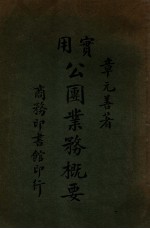 實用
章元善著
公團業務概要
商務印書館印行